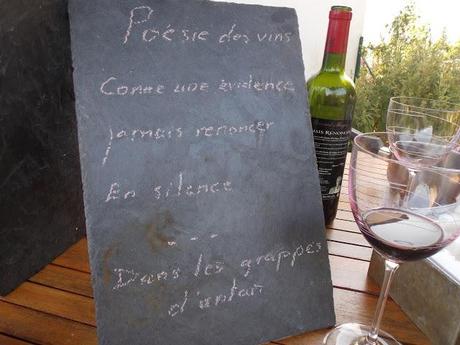 Poésie des vins
Comme une évidence
Jamais renoncer
En silence
...
Dans les grappes
d'antan